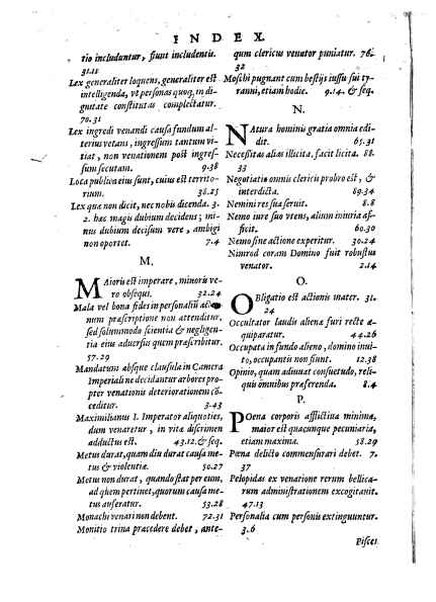 INDEX.
tio includuntur, fiunt includentis.
31.11
Lex generaliter loquens, generaliter est
intelligenda, ut personas quoq, in di-
gnitate constitutas complectatur.
70.31
Lex ingredi venandi causa fundum al-
terius vetans, ingressum tantum vi-
tiat, non venationem post ingres-
sum secutam. 9.38
Loca publica eius sunt, cuius est territo-
rium. 38.25
Lex quæ non dicit, nec nobis dicenda. 3.
2. hæc magis dubium decidens; mi-
nus dubium decisum vere, ambigi
non oportet. 7.4
M.
MAioris est imperare, minoris ve-
ro obsequi. 32.24
Mala vel bona fides in personalium acti-
onum præscriptione non attenditur,
sed solummodo scientia & negligen-
tia eius adversus quem præscribitur.
57.29
Mandatum absque clausula in Camera
Imperiali ne decidantur arbores pro-
pter venationis deteriorationem cō-
ceditur. 3.43
Maximilianus I. Imperator aliquoties,
dum venaretur, in vitæ discrimen
adductus est. 43.12.& seq.
Metus durat, quam diu durat causa me-
tus & violentiæ. 50.27
Metus non durat, quando stat per eum,
ad quem pertinet, quorum causa me-
tus auferatur. 53.28
Monachi venari non debent. 72.31
Monitio trina præcedere debet, ante-
quam clericus venator puniatur. 76.
32
Moschi pugnant cum bestijs iussu sui ty-
ranni, etiam hodie. 9.14. & seq.
N.
NAtura hominis gratia omnia edi-
dit. 65.31
Necessitas alias illicita, facit licita. 88.
33
Negotiatio omnis clericis probro est, &
interdicta. 89.34
Nemini res sua servit. 8.8
Nemo iure suo utens, alium iniuria af-
ficit. 60.30
Nemo sine actione experitur. 30.24
Nimrod coram Domino fuit robustus
venator. 2.14
O.
OBligatio est actionis mater. 31.
24
Occultator laudis alienæ furi recte æ-
quiparatur. 44.26
Occupata in fundo alieno, domino invi-
to, occupantis non fiunt. 12.38
Opinio, quam adiuvat consuetudo, reli-
quis omnibus præferenda. 8.4
P.
POena corporis afflictiva minima,
maior est quacunque pecuniaria,
etiam maxima. 58.29
Pœna delicto commensurari debet. 7.
37
Pelopidas ex venatione rerum bellica-
rum administrationem excogitavit.
47.13
Personalia cum personis extinguuntur.
3.6
Pisces